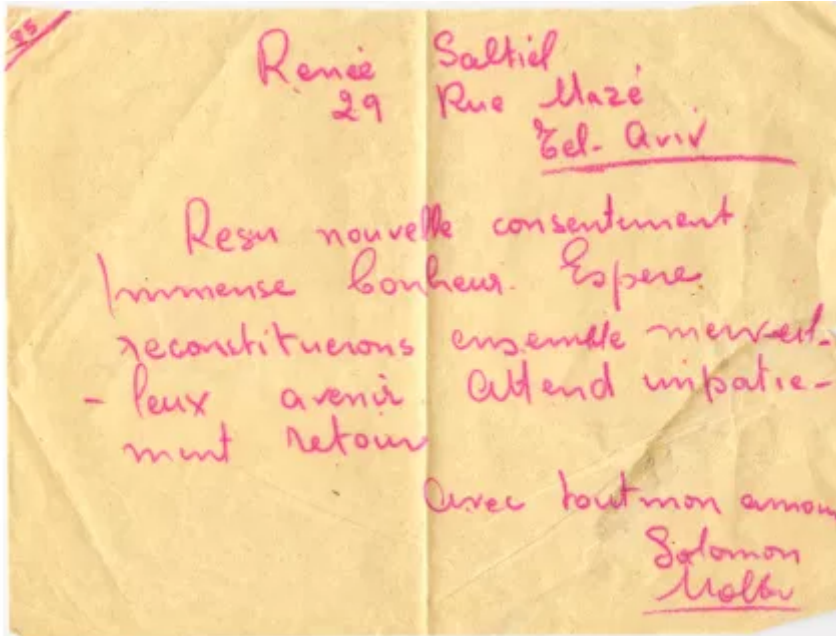 85
Renée Saltiel
29 Rue Mazé
Tel-Aviv
Resu nouvelle consentement
Immense bonheur. Espere
reconstituerons ensemble merveil-
-leux avenir Attend impatie-
mment retour
avec tout mon amour
Solomon